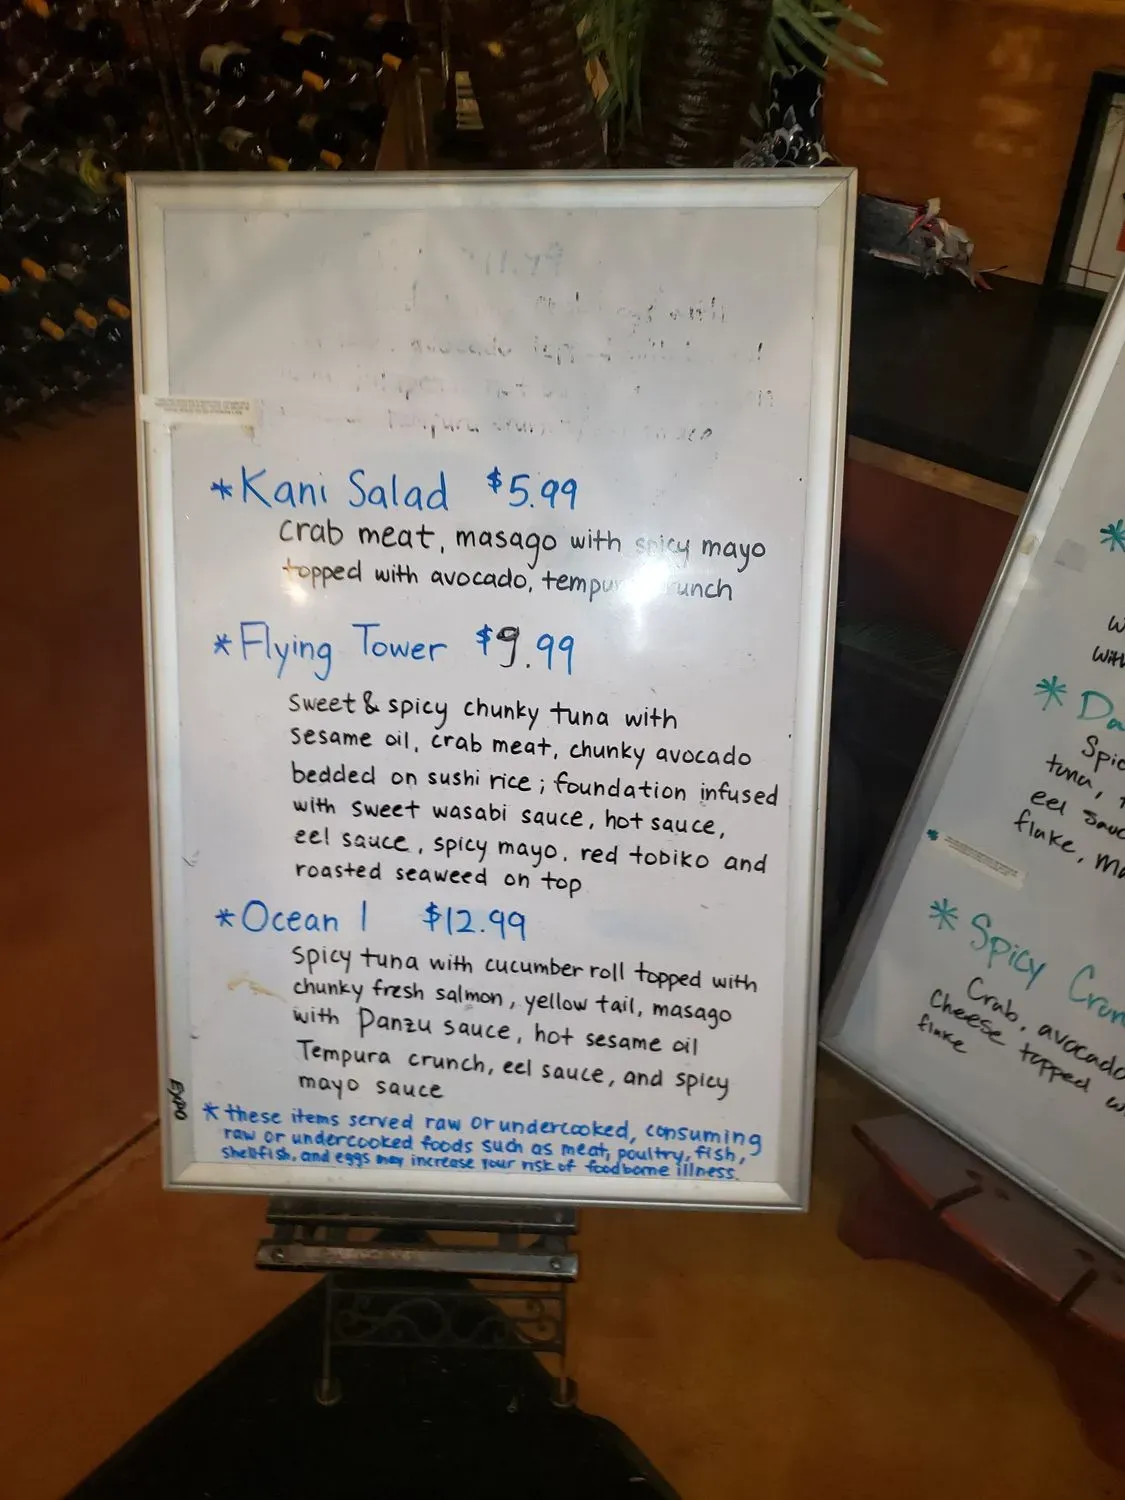 * Kani Salad $5.99
crab meat, masago with spicy mayo
topped with avocado, tempura crunch
* Flying Tower $9.99
sweet & spicy chunky tuna with
sesame oil, crab meat, chunky avocado
bedded on sushi rice ; foundation infused
with sweet wasabi sauce, hot sauce,
eel sauce, spicy mayo, red tobiko and
roasted seaweed on top
* Ocean 1 $12.99
spicy tuna with cucumber roll topped with
chunky fresh salmon, yellow tail, masago
with Panzu sauce, hot sesame oil
Tempura crunch, eel sauce, and spicy
mayo sauce
* these items served raw or undercooked, consuming
raw or undercooked foods such as meat, poultry, fish,
shellfish, and eggs may increase your risk of foodborne illness.
EXPO
*
with
* Da
Spic
tuna,
eel sauc
flake, m
* Spicy Crun
Crab, avocado
Cheese topped w
flake